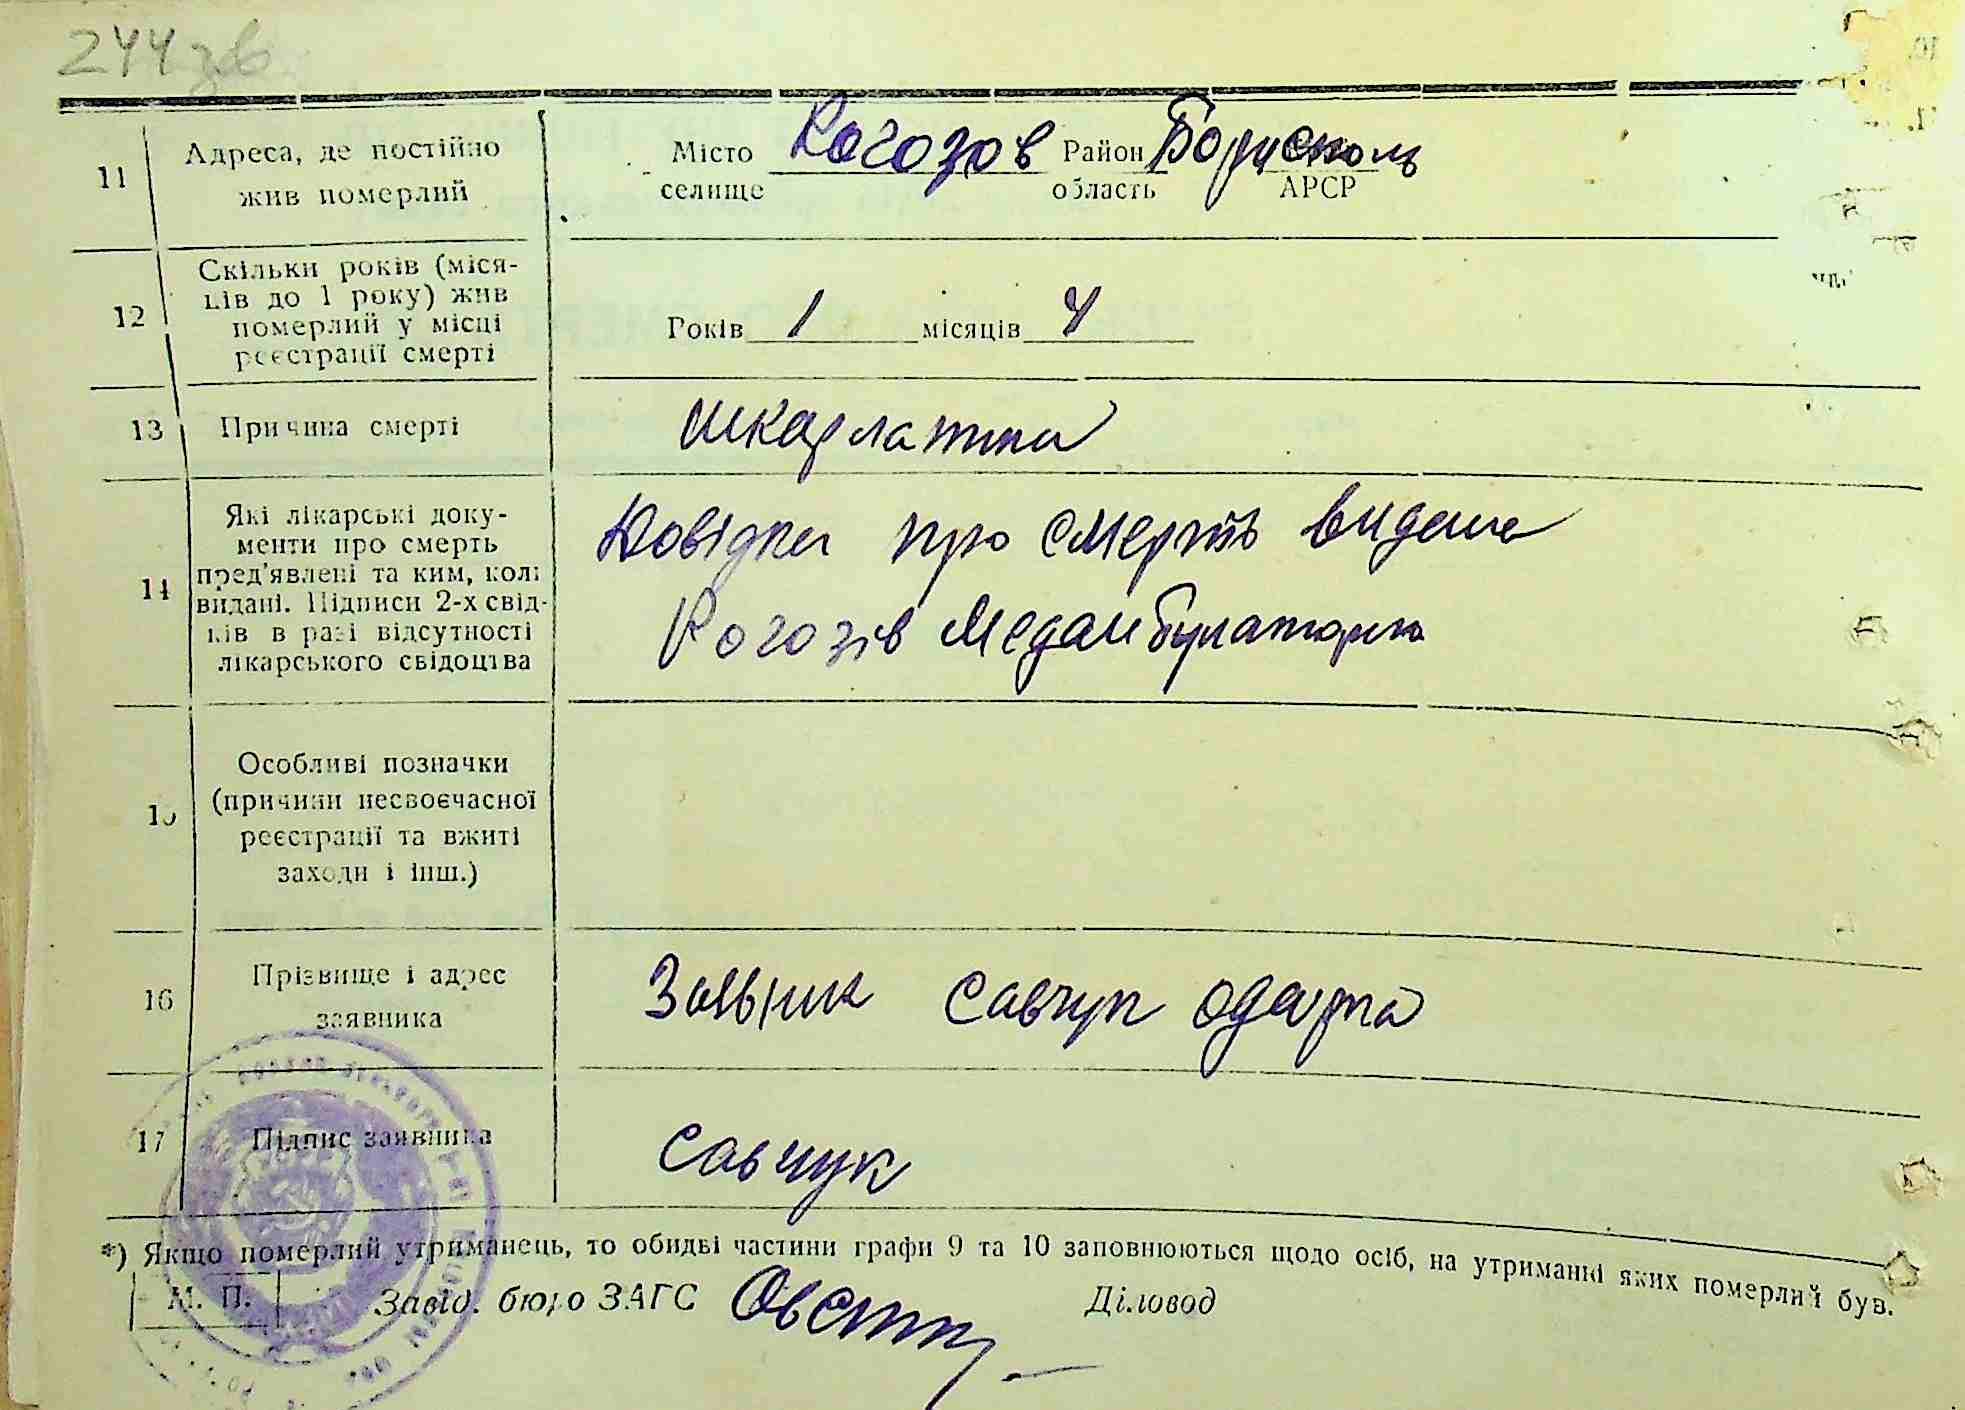 244зв
11
Адреса, де постійно
жив померлий
Місто
селище
Рогозов
Район
область
Борисполь
АРСР
12
Скільки років (міся-
ців до 1 року) жив
померлий у місці
реєстрації смерті
Років 1 місяців 4
13
Причина смерті
шкарлатина
14
Які лікарські доку-
менти про смерть
пред'явлені та ким, колі
видані. Підписи 2-х свід-
ків в разі відсутності
лікарського свідоцтва
Довідка про смерть видана
Рогозів Медамбулаторія
15
Особливі позначки
(причини несвоєчасної
реєстрації та вжиті
заходи і інш.)
16
Прізвище і адрес
заявника
Заявник Савчук Одарка
17
Підпис заявника
Савчук
*) Якщо померлий утриманець, то обидві частини графи 9 та 10 заповнюються щодо осіб, на утриманні яких померлий був.
М. П.
Завід. бюро ЗАГС
Діловод